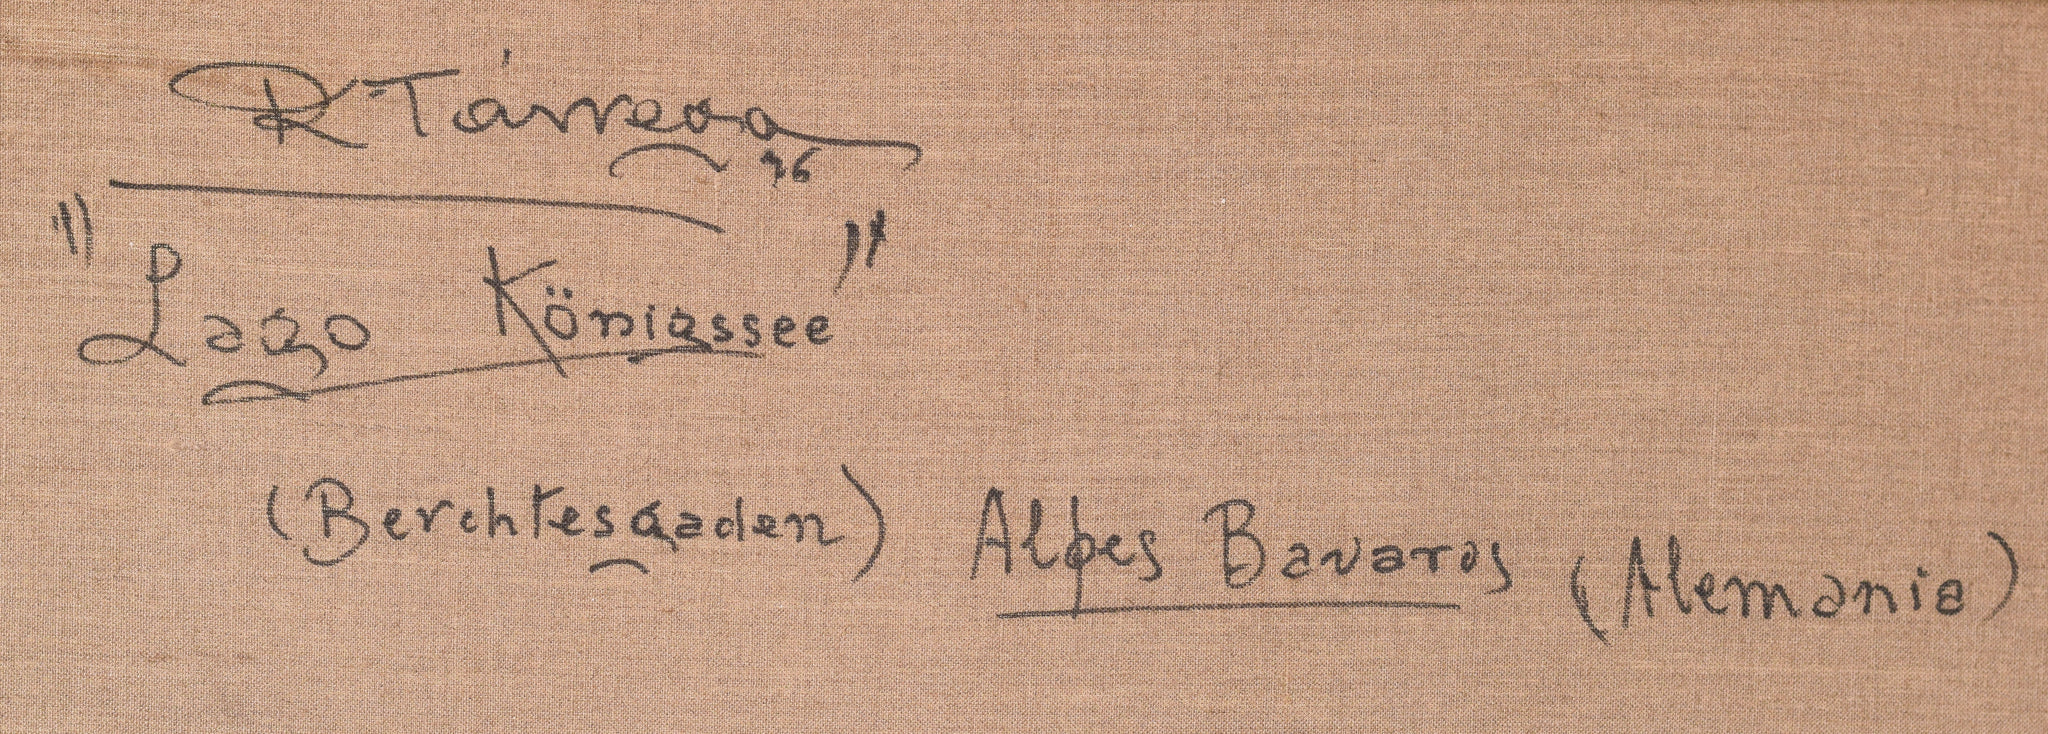 R Tárrega
76
"Lago Königssee"
(Berchtesgaden) Alpes Bavaros (Alemania)